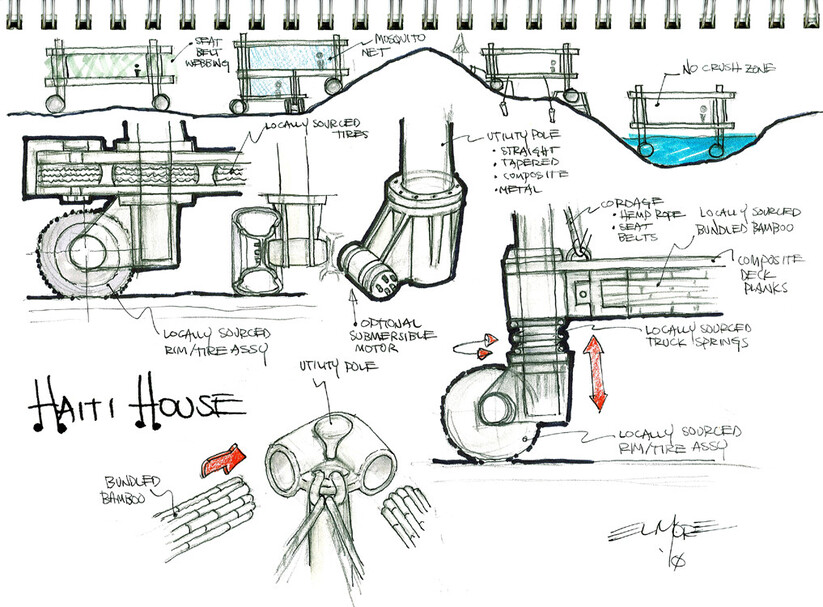 SEAT
BELT
WEBBING
MOSQUITO
NET
NO CRUSH ZONE
LOCALLY SOURCED
TIRES
UTILITY POLE
• STRAIGHT
• TAPERED
• COMPOSITE
• METAL
CORDAGE
• HEMP ROPE
• SEAT
BELTS
LOCALLY SOURCED
BUNDLED BAMBOO
COMPOSITE
DECK
PLANKS
OPTIONAL
SUBMERSIBLE
MOTOR
LOCALLY SOURCED
RIM/TIRE ASSY
LOCALLY SOURCED
TRUCK SPRINGS
UTILITY POLE
HAITI HOUSE
LOCALLY SOURCED
RIM/TIRE ASSY
BUNDLED
BAMBOO
ELMORE
'10